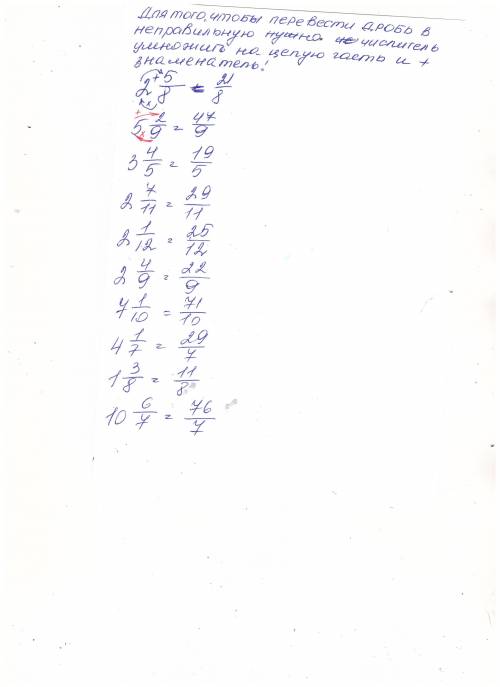 Для того, чтобы перевести дробь в
неправильную нужна числитель
умножить на целую часть и +
знаменатель!
2 5/8 = 21/8
5 2/9 = 47/9
3 4/5 = 19/5
2 7/11 = 29/11
2 1/12 = 25/12
2 4/9 = 22/9
7 1/10 = 71/10
4 1/7 = 29/7
1 3/8 = 11/8
10 6/7 = 76/7